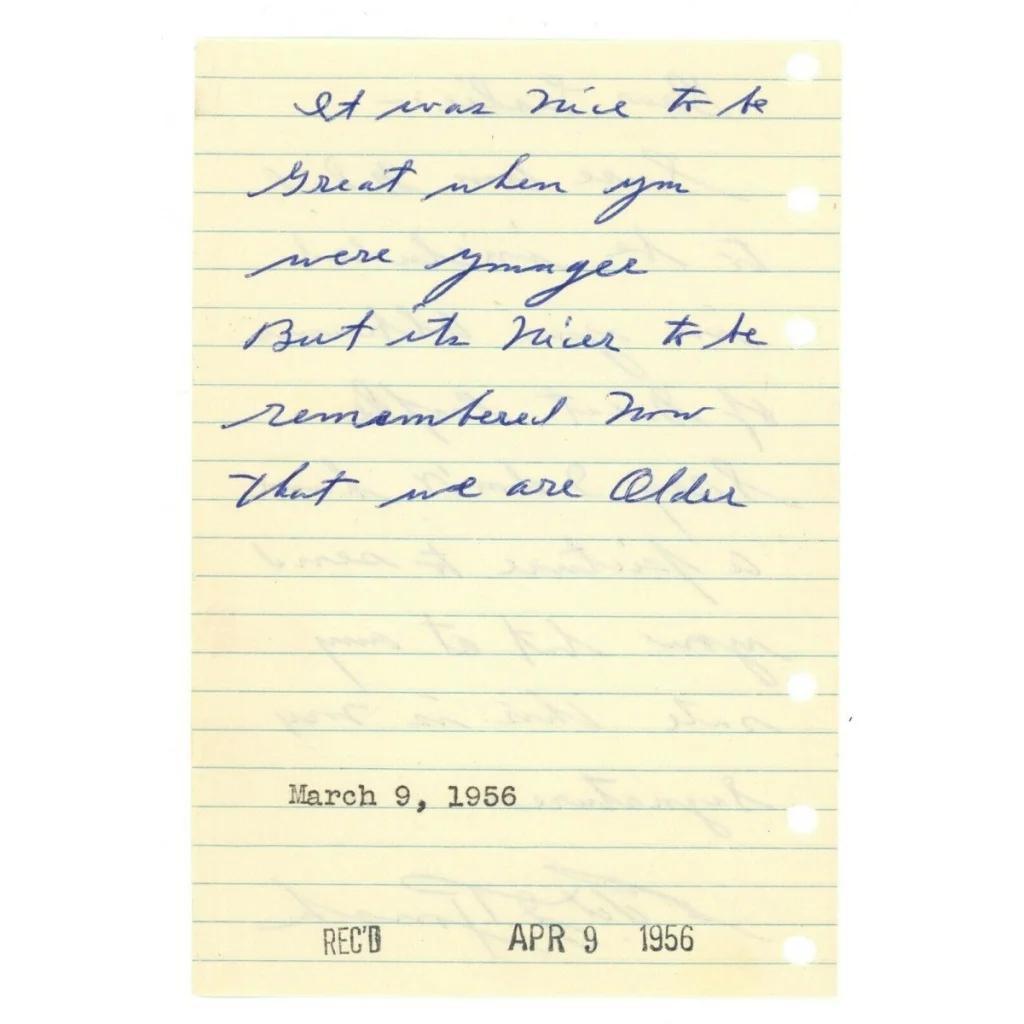 It was Nice to be
Great when you
were younger
But its Nicer to be
remembered Now
That we are Older
March 9, 1956
REC'D APR 9 1956